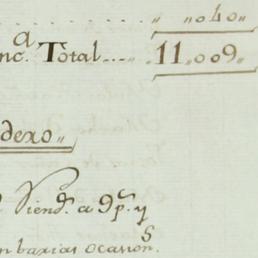 . . . . . . . . . . „ „04o„
nc.ª Total..... 11„009„
dero„
Siend.º a 9p.s y
n barias ocasion.s